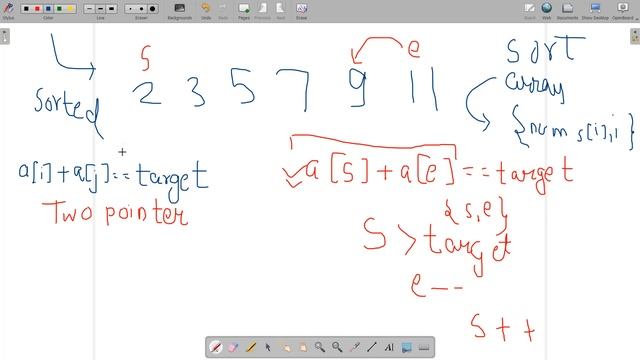 Stylus
Color
Line
Eraser
Backgrounds
Undo
Redo
Previous
Pages
Next
Erase
Board
Web
Documents
Show Desktop
OpenBoard
s
e
sort
array
Sorted
2 3 5 7 9 11
{nums[i],i}
a[i]+a[j]==target
a[s]+a[e]==target
Two pointer
{s,e}
S>target
e--
s++